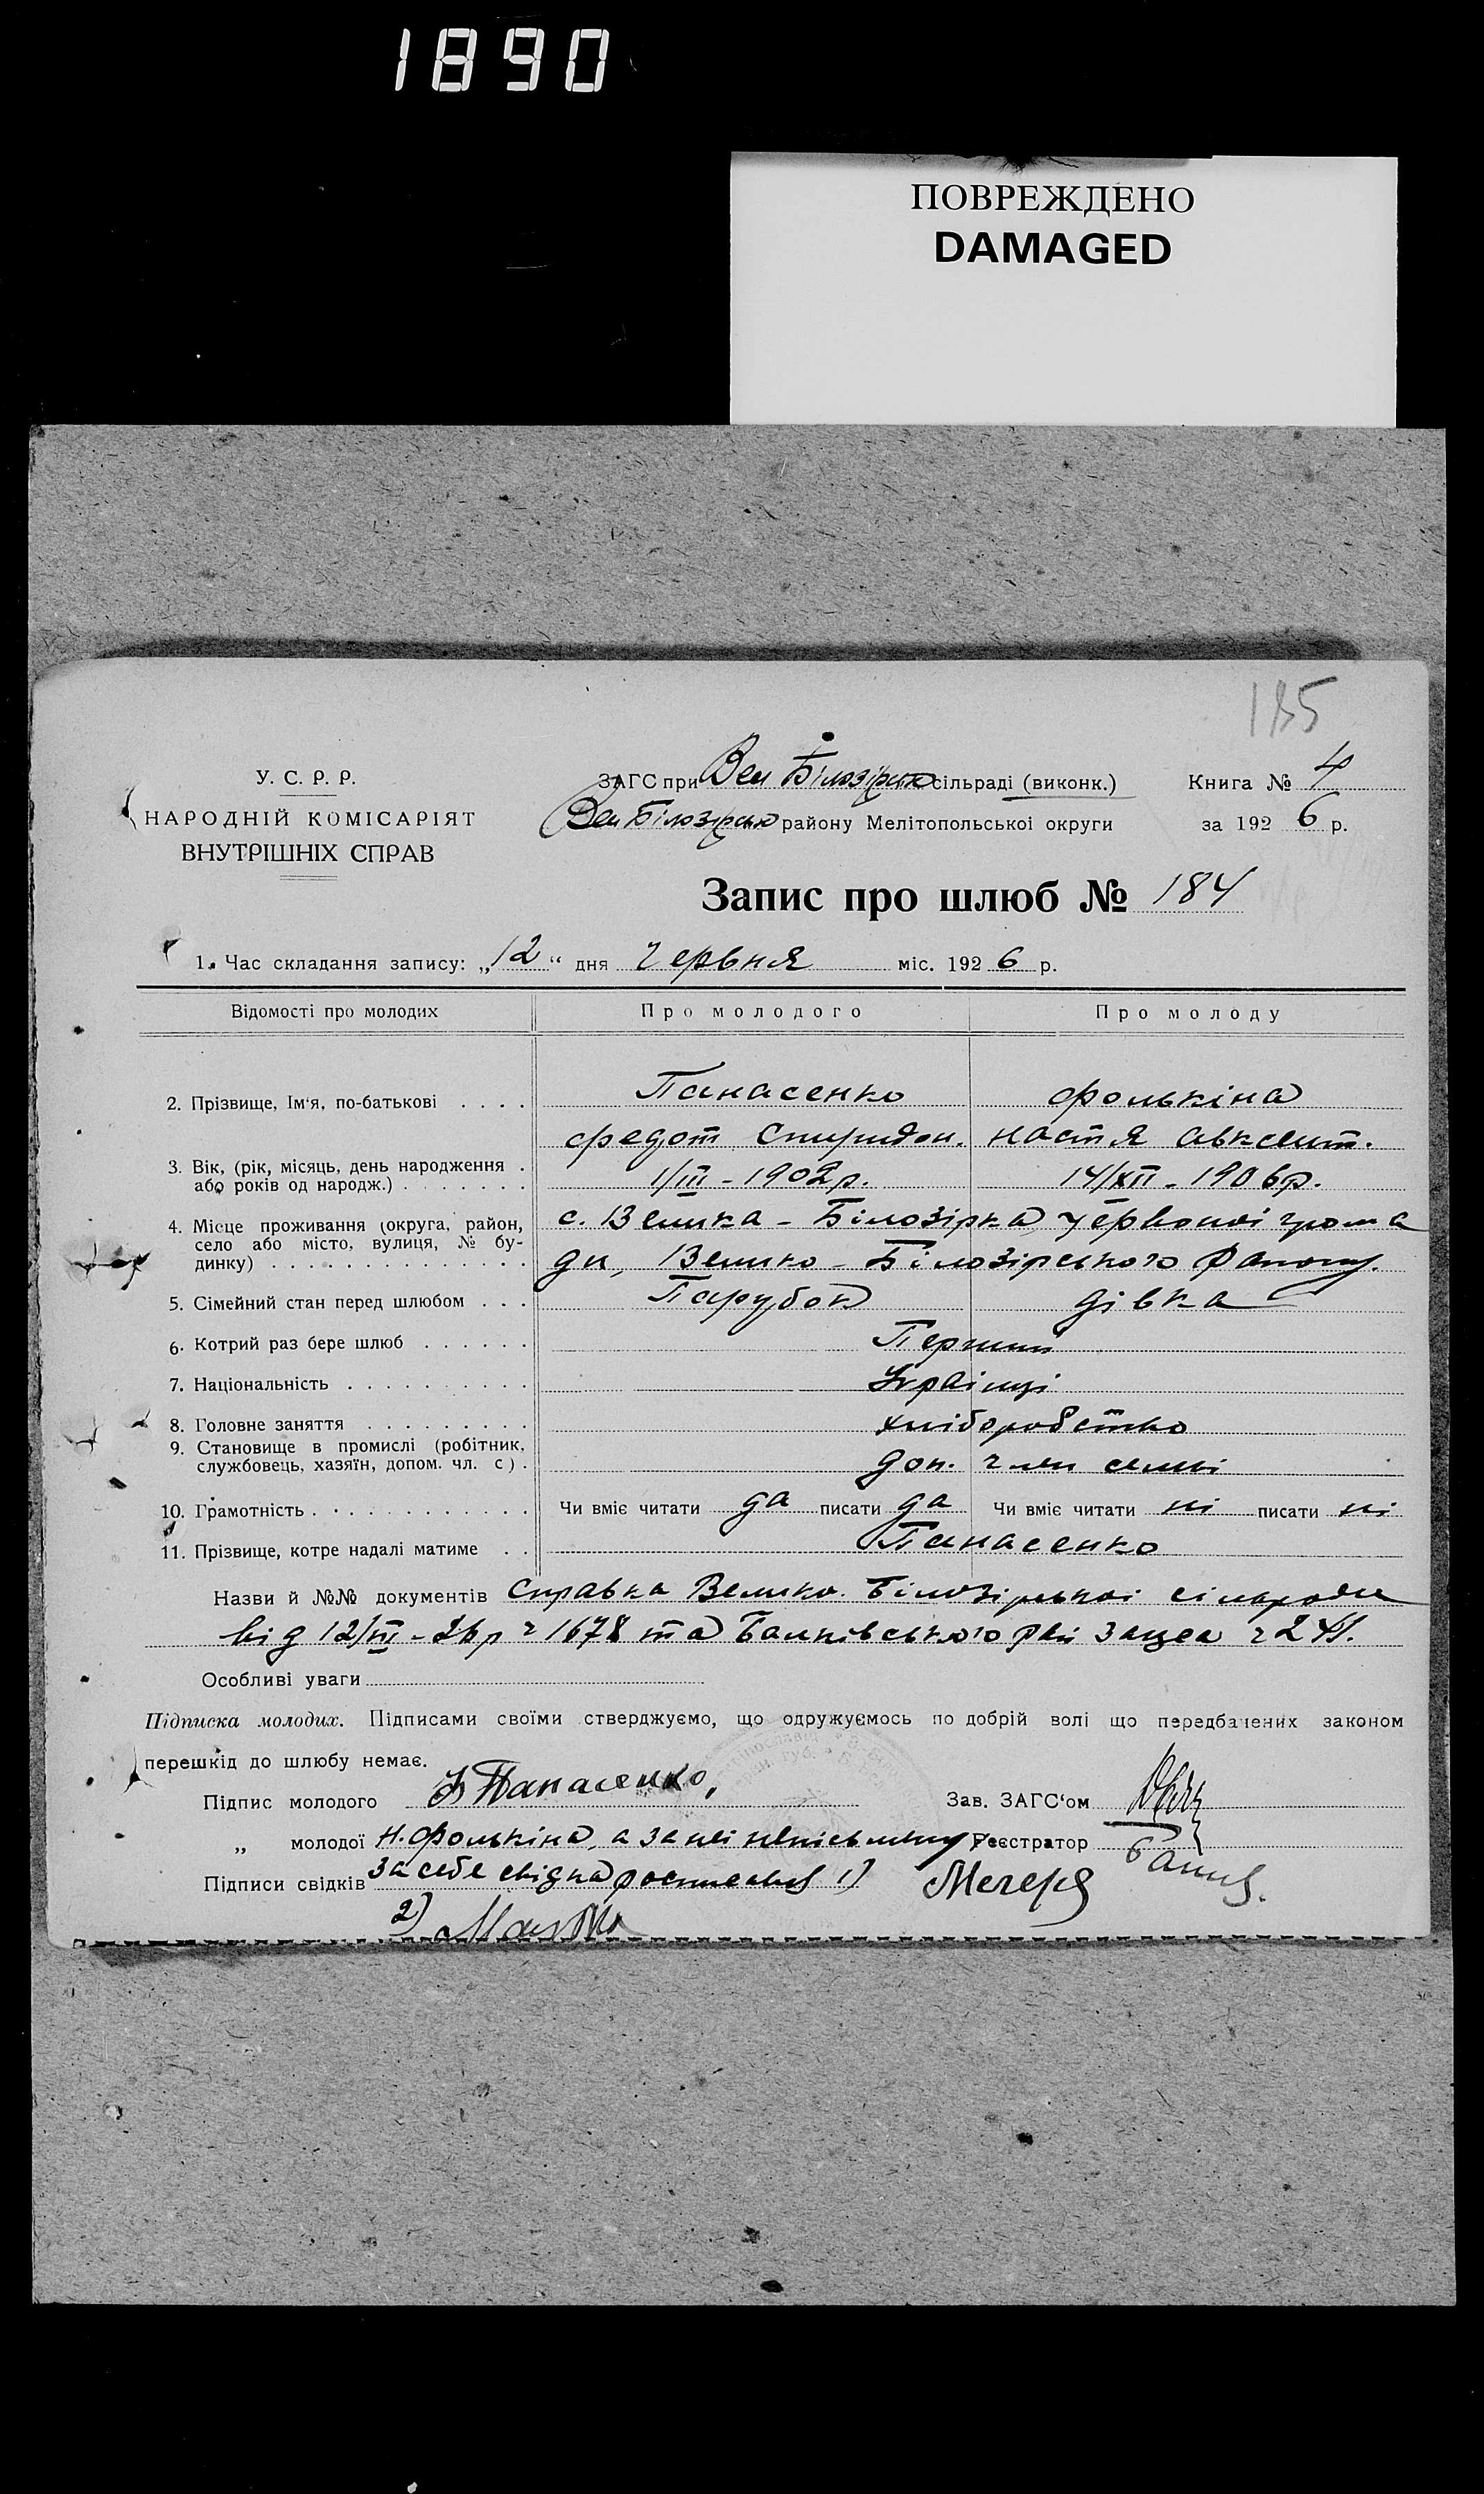 1890
ПОВРЕЖДЕНО
DAMAGED
185
У. С. Р. Р.
НАРОДНІЙ КОМІСАРІЯТ
ВНУТРІШНІХ СПРАВ
ЗАГС при Вел Білозірськ сільраді (виконк.)
Вел Білозірськ району Мелітопольської округи
Книга № 4
за 1926 р.
Запис про шлюб № 184
1. Час складання запису: „12“ дня Червня міс. 1926 р.
Відомості про молодих Про молодого Про молоду
2. Прізвище, Ім'я, по-батькові . . . . Панасенко Фолькіна
Федот Спиридон. Настя Авксент.
3. Вік, (рік, місяць, день народження . 1/III - 1902 р. 14/XII - 1906 р.
або років од народж.) . . . . . . .
4. Місце проживання (округа, район, с. Велика - Білозірка, Червоної грома
село або місто, вулиця, № бу-
динку) . . . . . . . . . . . . . . ди, Велико - Білозірського району.
5. Сімейний стан перед шлюбом . . . Парубок дівка
6. Котрий раз бере шлюб . . . . . . Перший
7. Національність . . . . . . . . . . Українці
8. Головне заняття . . . . . . . . . хліборобство
9. Становище в промислі (робітник,
службовець, хазяїн, допом. чл. с) . доп. член семьі
10. Грамотність . . . . . . . . . . . . Чи вміє читати да писати да Чи вміє читати ні писати ні
11. Прізвище, котре надалі матиме . . Панасенко
Назви й №№ документів Справка Велико Білозірської сільради
від 12/III - 26 р ч 1678 та Балківського рай
Особливі уваги
Підписка молодих. Підписами своїми стверджуємо, що одружуємось по добрій волі що передбачених законом
перешкід до шлюбу немає.
Підпис молодого Панасенко, Зав. ЗАГС'ом
„ молодої Н. Фолькіна, а за неі Реєстратор
Підписи свідків за себе свідка 1)
2)